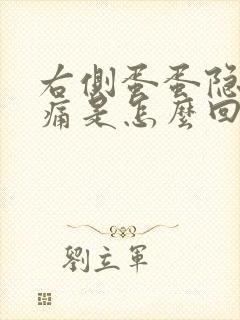 右側蛋蛋隐
痛是怎麼回
劉立軍